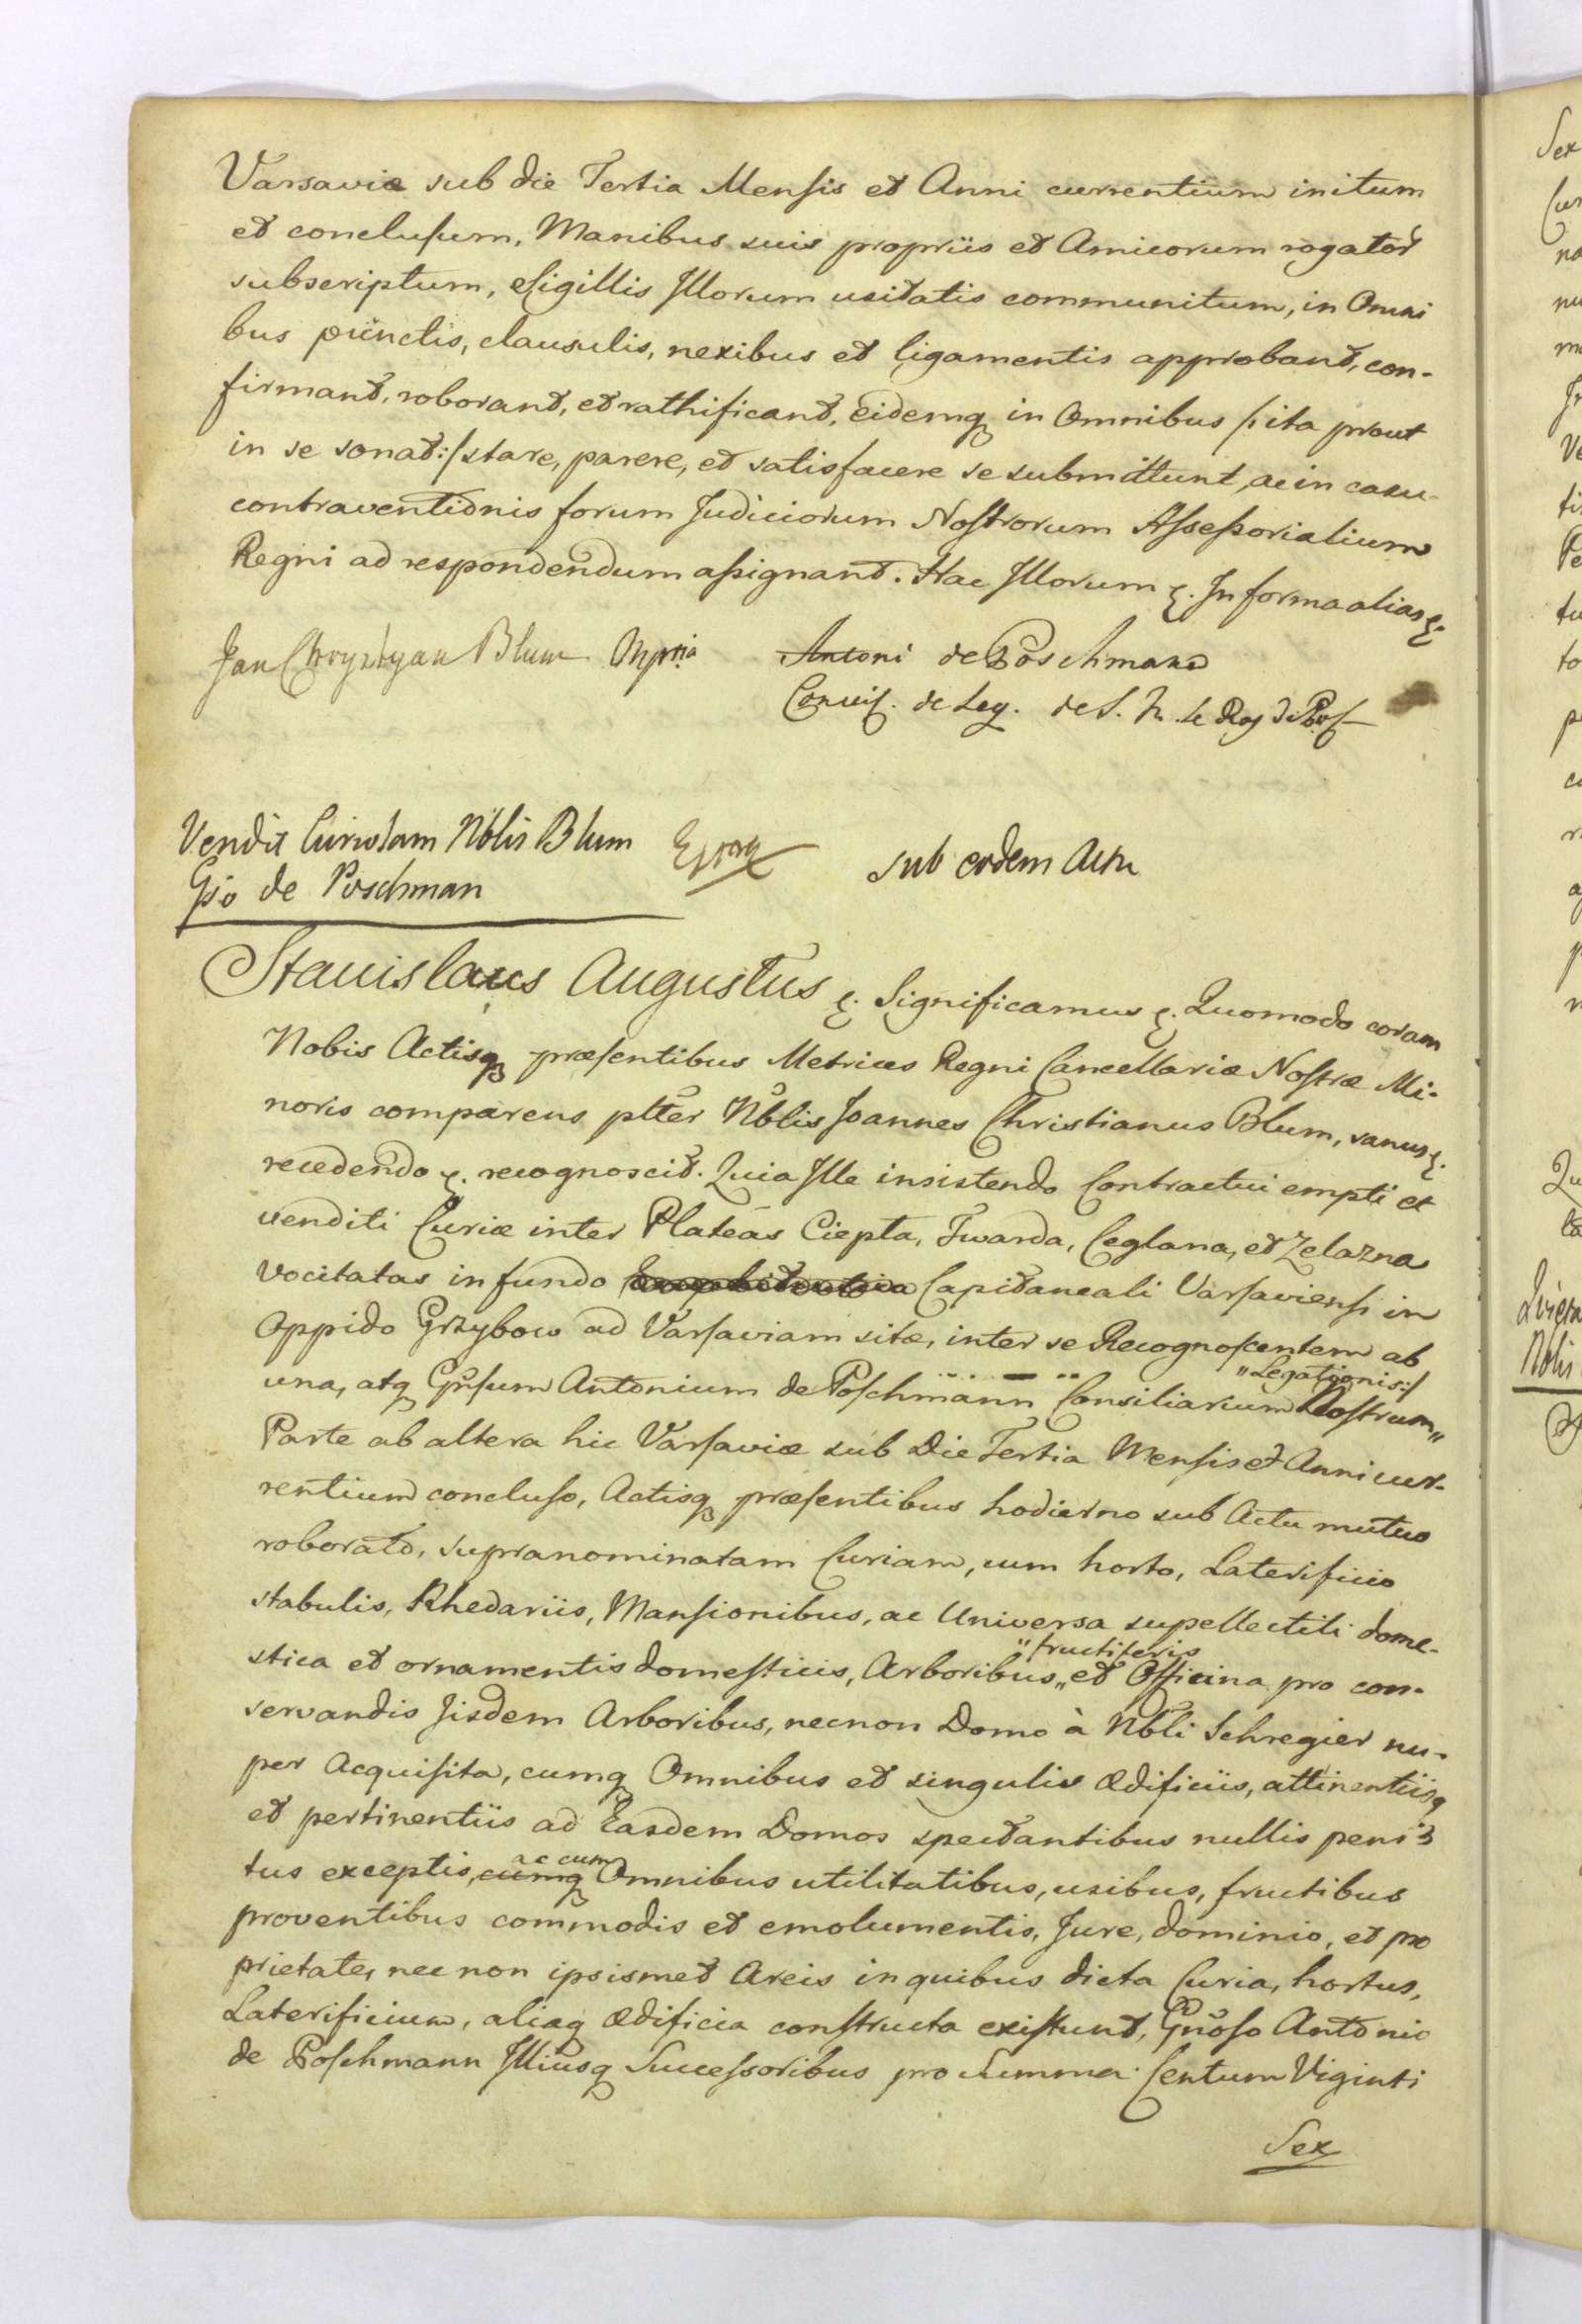 Varsaviæ sub die Tertia Mensis et Anni currentium initum
et conclusum, Manibus suis propriis et Amicorum rogator
subscriptum, Sigillis Illorum usitatis communitum, in Omni
bus punctis, clausulis, nexibus et ligamentis approbant, con-
firmant, roborant, et rathificant, eidemq in Omnibus /: ita prout
in se sonat :/ stare, parere, et satisfacere se submittunt, ac in casu
contraventionis forum Judiciorum Nostrorum Assessorialium
Regni ad respondendum assignant. Hac Illorum &. In forma alias &.
Jan Chrystyan Blum Mpria
Antoni de Poschmann
Conseil. de Leg. de S. M. le Roy de Pol
Vendit Curiolam Nblis Blum
Gso de Poschman
sub eodem Actu
Stanislaus Augustus &. Significamus &. Quomodo coram
Nobis Actisq præsentibus Metrices Regni Cancellariæ Nostræ Mi-
noris comparens pltter Nblis Joannes Christianus Blum, sanus &.
recedendo &. recognoscit. Quia Ille insistendo Contractui empti et
venditi Curiæ inter Plateas Ciepta, Twarda, Ceglana, et Zelazna
vocitatas in fundo Capitaneali Varsaviensi in
Oppido Grzybow ad Varsaviam sitæ, inter se Recognoscentem ab
una, atq Gnsum Antonium de Poschmann Consiliarium "Legationis:/ Nostrum"
Parte ab altera hic Varsaviæ sub Die Tertia Mensis et Anni cur-
rentium concluso, Actisq præsentibus hodierno sub Actu mutuo
roborato, supranominatam Curiam, cum horto, Laterificio
stabulis, Rhedariis, Mansionibus, ac Universa supellectili dome-
stica et ornamentis domesticis, Arboribus "fructiferis" et Officina pro con-
servandis Iisdem Arboribus, necnon Domo à Nbli Schregier nu-
per Acquisita, cumq Omnibus et singulis Ædificiis, attinentiisq
et pertinentiis ad Easdem Domos spectantibus nullis peni
tus exceptis, cumq ac cum Omnibus utilitatibus, usibus, fructibus
proventibus commodis et emolumentis, Jure, dominio, et pro
prietate, nec non ipsismet Areis in quibus dicta Curia, hortus,
Laterificium, aliaq Ædificia constructa existunt, Gnoso Antonio
de Poschmann Illiusq Successoribus pro Summa Centum Viginti
Sex